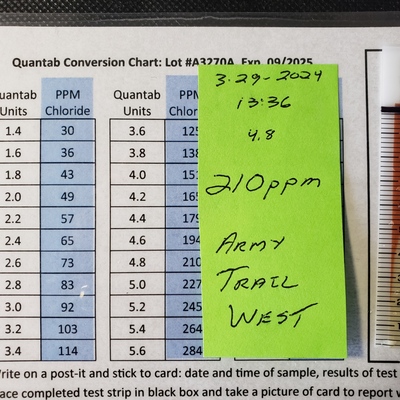 Quantab Conversion Chart: Lot #A3270A, Exp. 09/2025
uantab PPM Quantab PPM
Units Chloride Units Chlo
1.4 30 3.6 125
1.6 36 3.8 138
1.8 43 4.0 151
2.0 49 4.2 165
2.2 57 4.4 179
2.4 65 4.6 194
2.6 73 4.8 210
2.8 83 5.0 227
3.0 92 5.2 245
3.2 103 5.4 264
3.4 114 5.6 284
3-29-2024
13:36
4.8
210ppm
ARMY
TRAIL
WEST
rite on a post-it and stick to card: date and time of sample, results of test
ace completed test strip in black box and take a picture of card to report